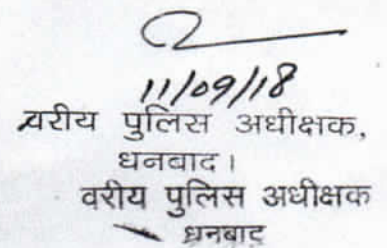 11/09/18
वरीय पुलिस अधीक्षक,
धनबाद।
वरीय पुलिस अधीक्षक
धनबाद